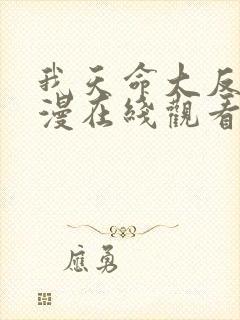 我天命大反
漫在綫觀看
應勇